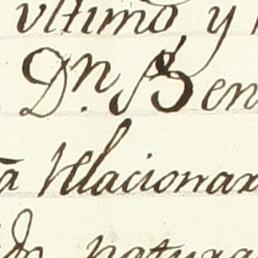 ultimo y
Dn. Ben
a Relacionar
do natura